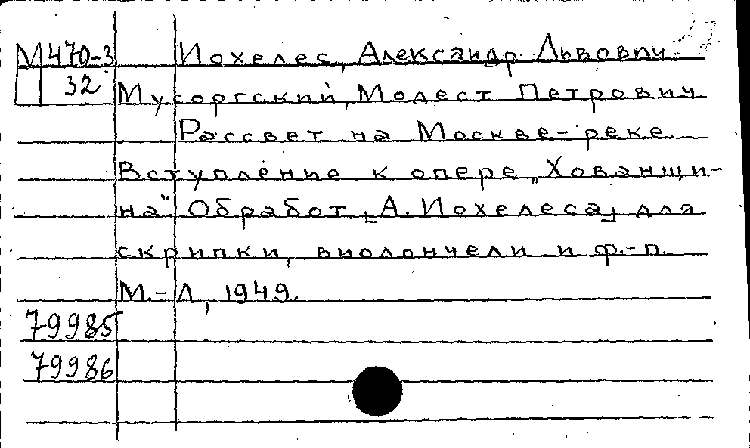 М470-3 Иохелес, Александр Львович.
32 Мусоргский, Модест Петрович
Рассвет на Москве-реке.
Вступление к опере „Хованщи-
на" Обработ [А. Иохелеса] для
скрипки, виолончели и ф.-п.
М.-Л, 1949.
79985
79986